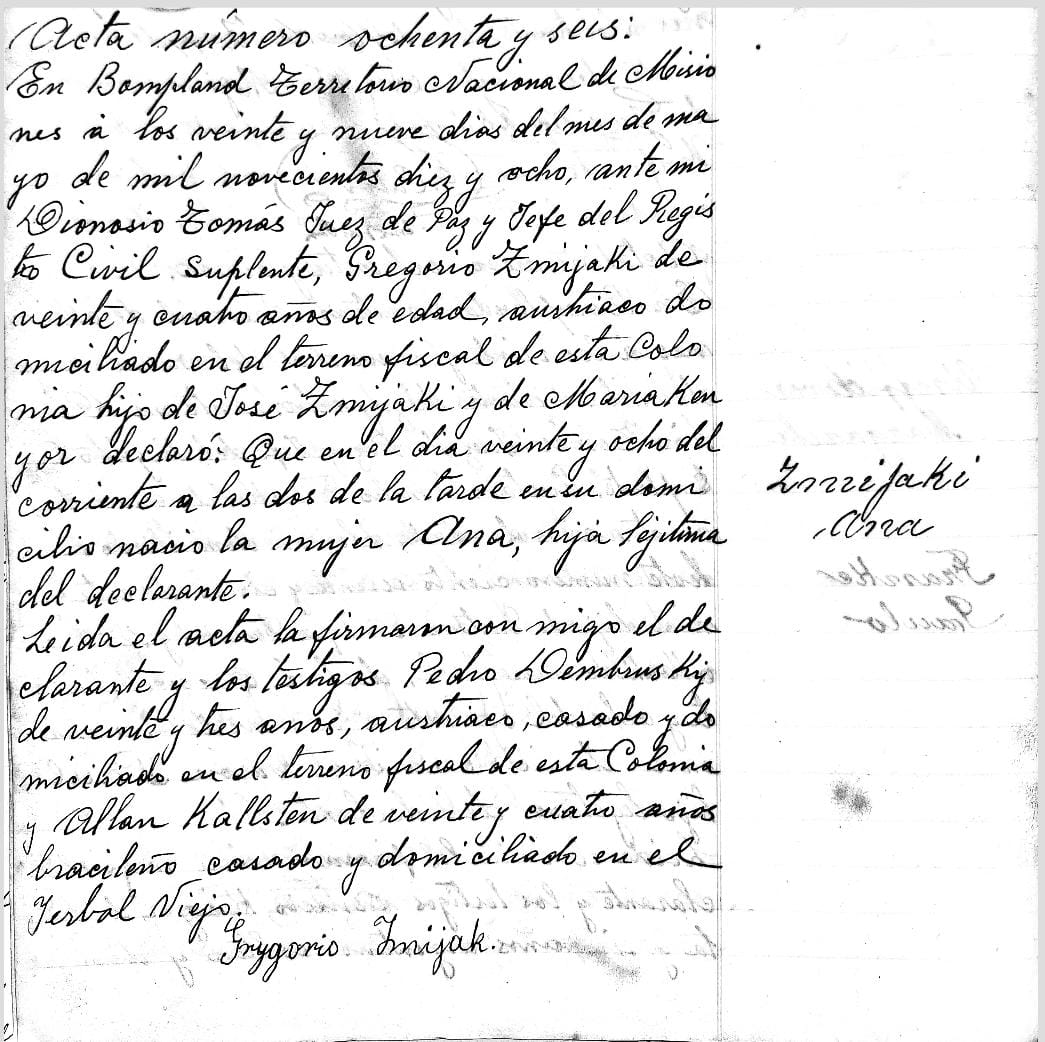 Acta número ochenta y seis:
En Bompland Territorio Nacional de Misio
nes à los veinte y nueve dias del mes de ma
yo de mil novecientos diez y ocho, ante mi
Dionosio Tomás Juez de Paz y Jefe del Regis
tro Civil Suplente, Gregorio Zmijaki de
veinte y cuatro años de edad, austriaco do
miciliado en el terreno fiscal de esta Colo
nia hijo de José Zmijaki y de Maria Ken
yor declaró: Que en el dia veinte y ocho del
corriente a las dos de la tarde en su domi
cilio nacio la mujer Ana, hija lejitima
del declarante.
Leida el acta la firmaron con migo el de
clarante y los testigos Pedro Dembrusky
de veinte y tres anos, austriaco, casado y do
miciliado en el terreno fiscal de esta Colonia
y Allan Kallsten de veinte y cuatro años
bracileño casado y domiciliado en el
Yerbal Viejo.
Grygorio Zmijak.
Zmijaki
Ana